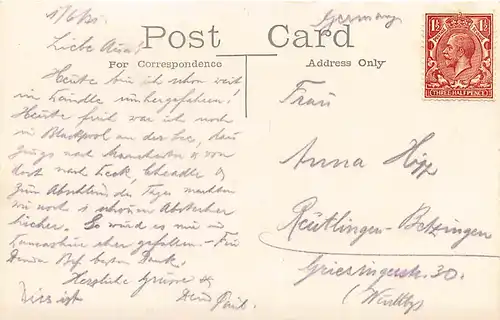 Germany
Post Card
For Correspondence
Address Only
THREE HALFPENCE
Liebe Anna!
Heute bin ich schon weit
im Ländle umhergefahren!
Heute früh war ich noch
in Blackpool an der See, dann
gings nach Manchester & von
dort nach Leek, Cheadle &
zum Abschluss des Tages machten
wir noch 1 schönen Abstecher
hierher. So würd es mir in
Lancashire eher gefallen. - Für
Deinen Bf. besten Dank.
Herzliche Grüsse
Dein Paul.
Frau
Anna Hipp
Reutlingen-Betzingen
Griesingerstr. 30.
(Württbg)